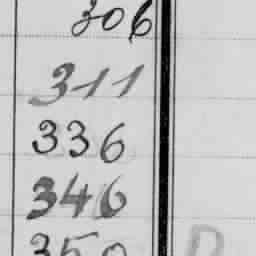 306
311
336
346
350